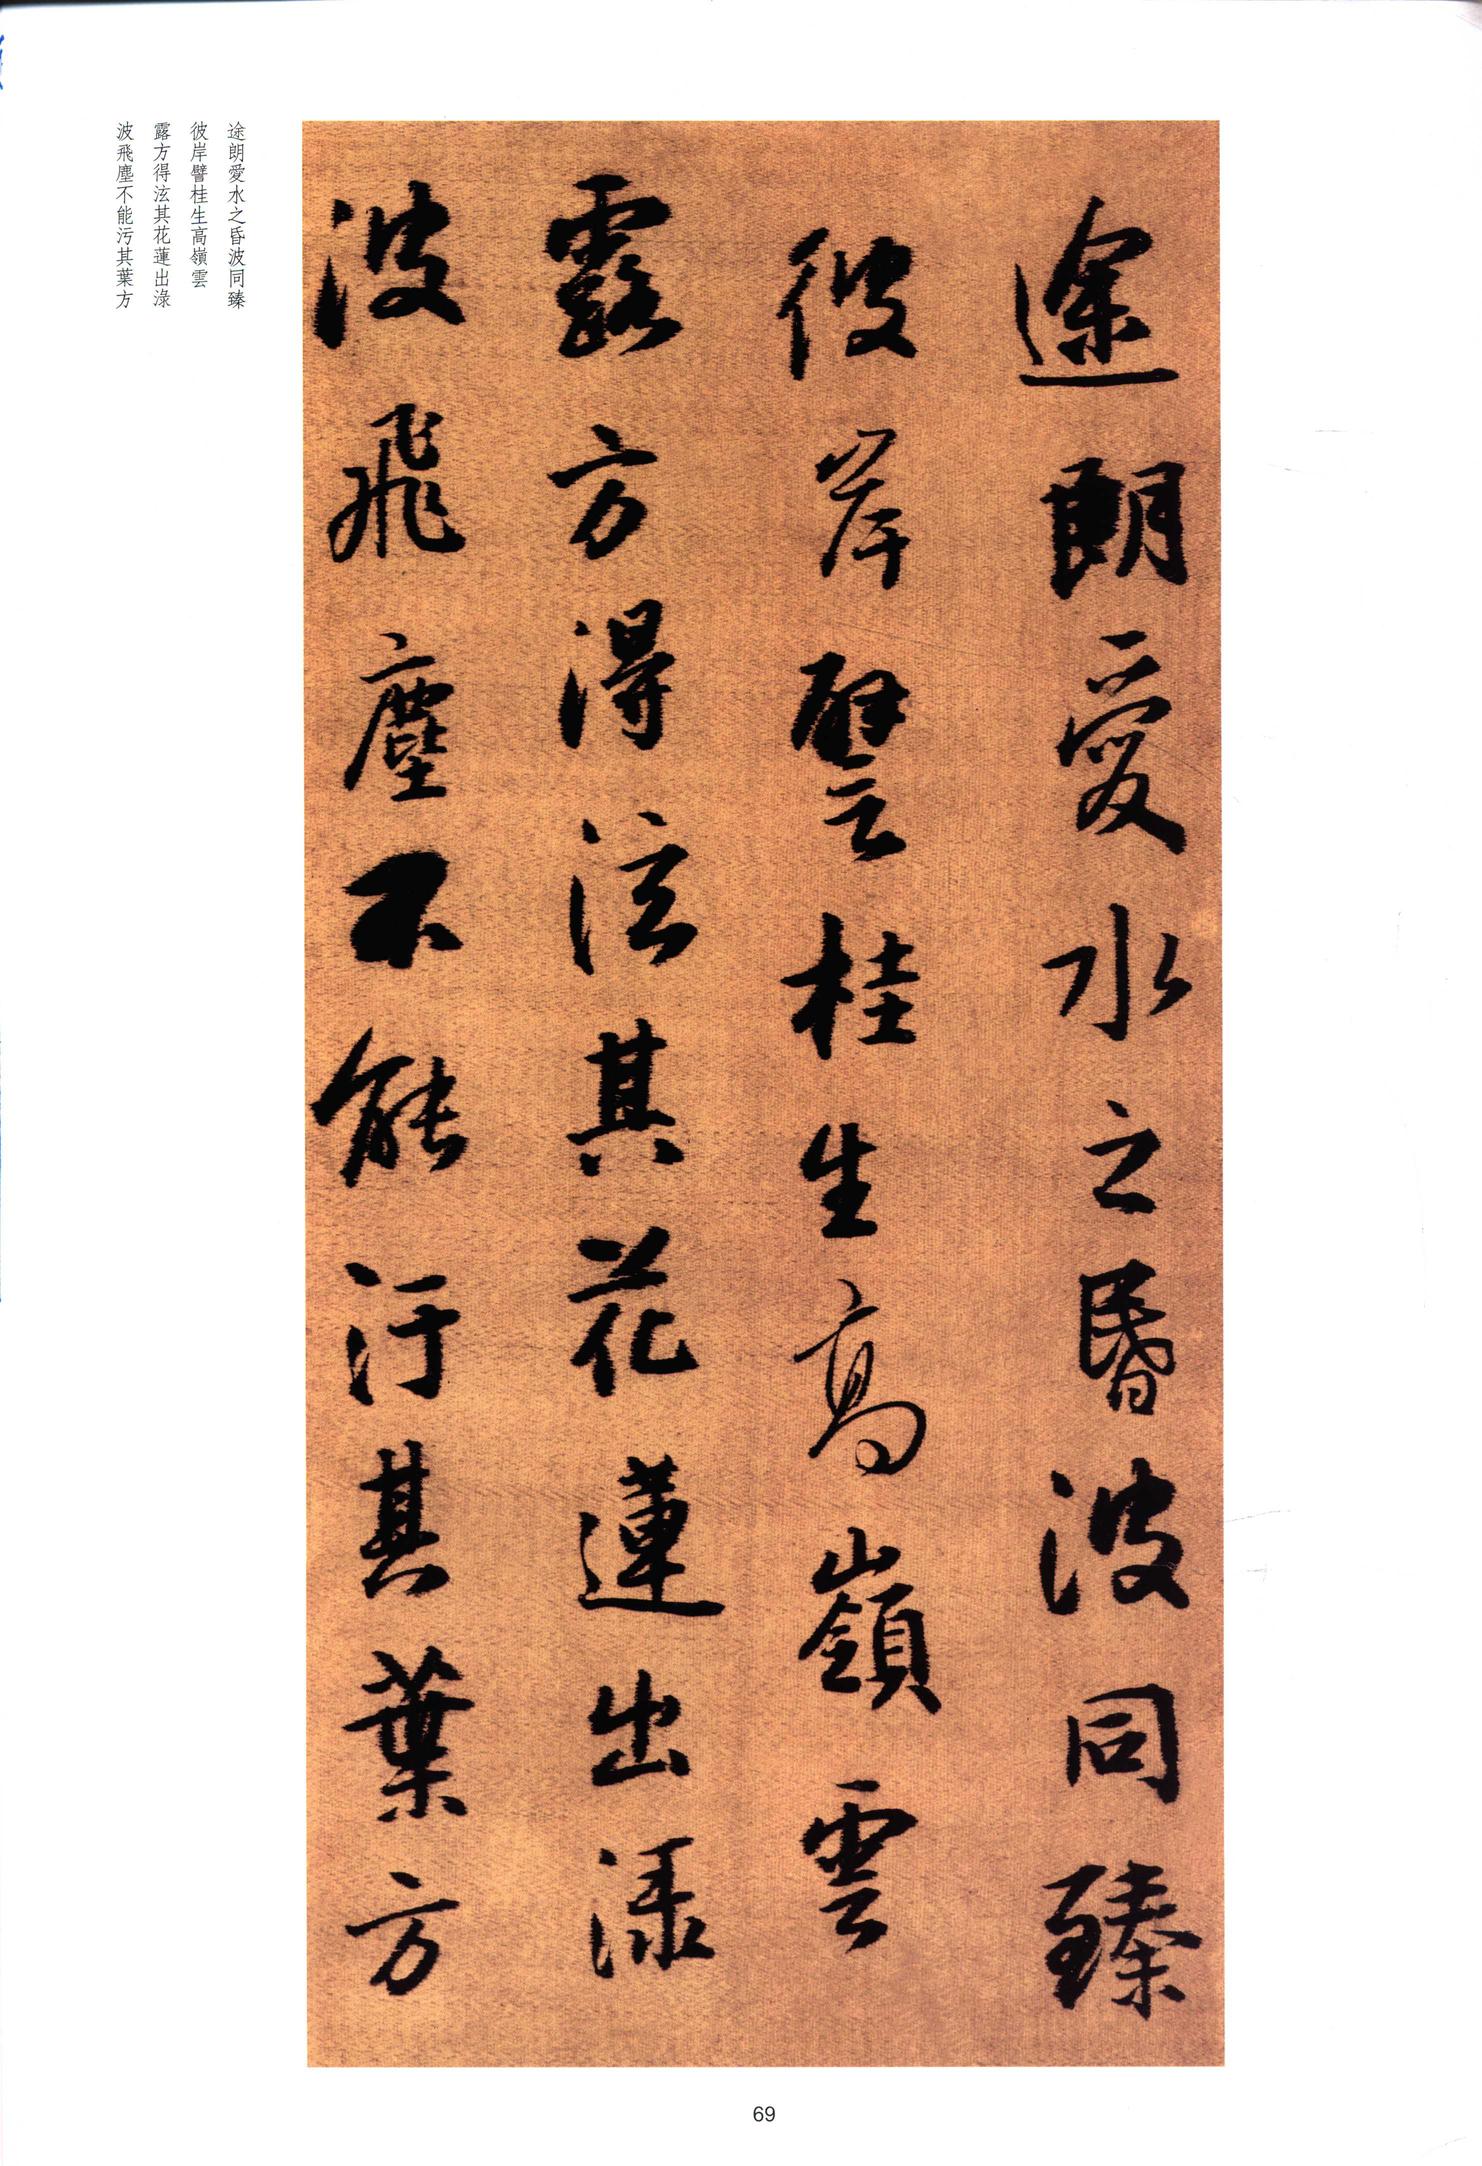 途朗愛水之昏波同臻
彼岸譬桂生高嶺雲
露方得泫其花蓮出渌
波飛塵不能污其葉方
途朗愛水之昬波同臻
彼岸譬桂生高嶺雲
露方得泫其花蓮出渌
波飛塵不能汙其葉方
69